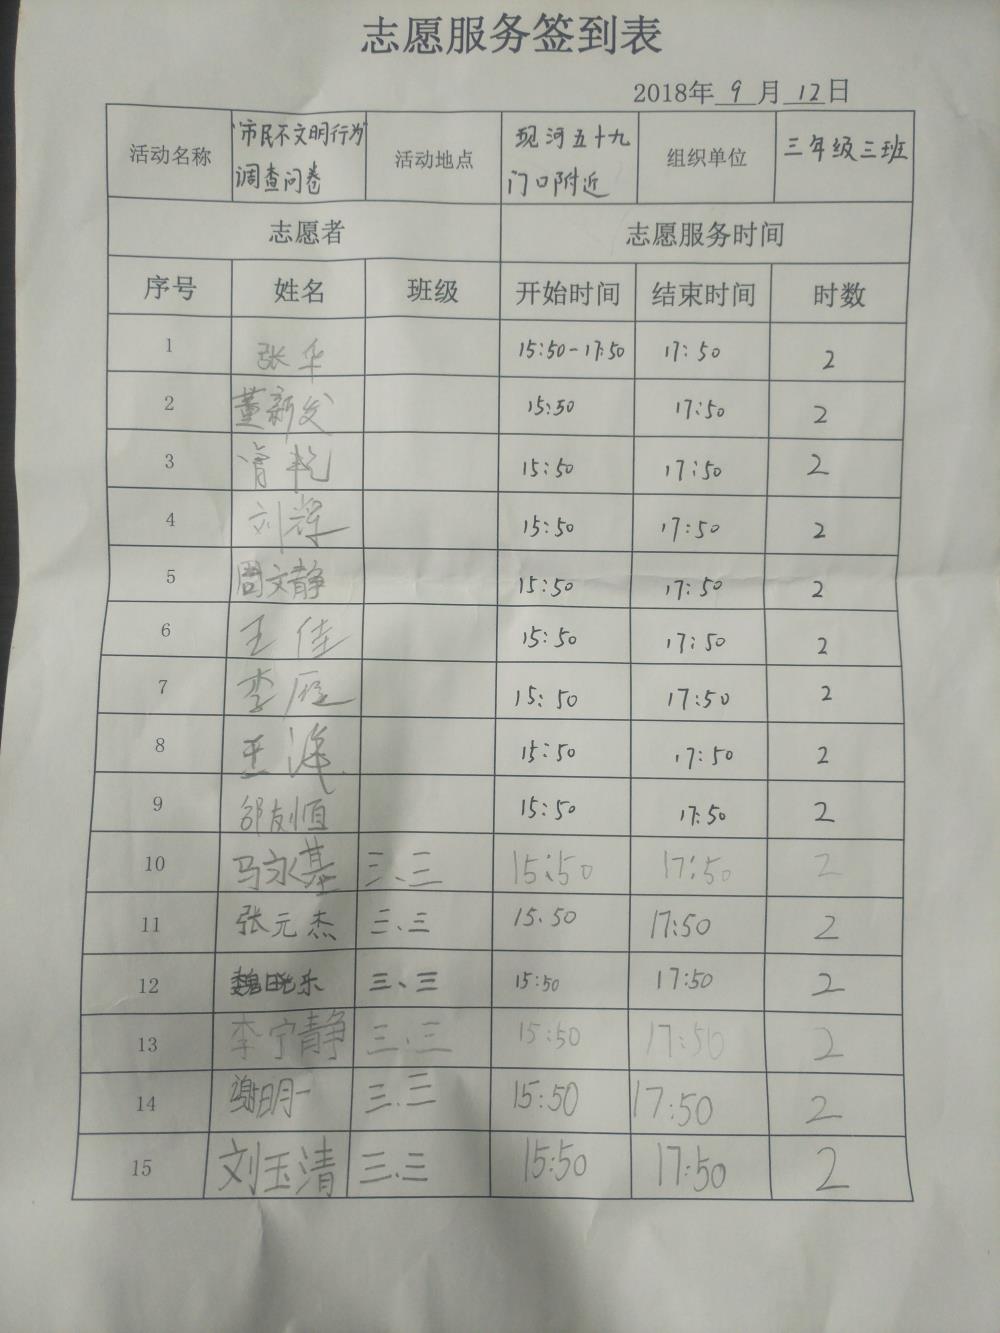 志愿服务签到表
2018年 9 月 12 日
活动名称 “市民不文明行为”调查问卷 活动地点 现河五十九门口附近 组织单位 三年级三班
志愿者 志愿服务时间
序号 姓名 班级 开始时间 结束时间 时数
1 张华 15:50-17:50 17:50 2
2 董新发 15:50 17:50 2
3 15:50 17:50 2
4 刘辉 15:50 17:50 2
5 周文静 15:50 17:50 2
6 王佳 15:50 17:50 2
7 李 15:50 17:50 2
8 王海 15:50 17:50 2
9 15:50 17:50 2
10 马永基 三、三 15:50 17:50 2
11 张元杰 三、三 15.50 17:50 2
12 魏晓乐 三、三 15:50 17:50 2
13 李宁静 三、三 15:50 17:50 2
14 谢明一 三、三 15:50 17:50 2
15 刘玉清 三、三 15:50 17:50 2